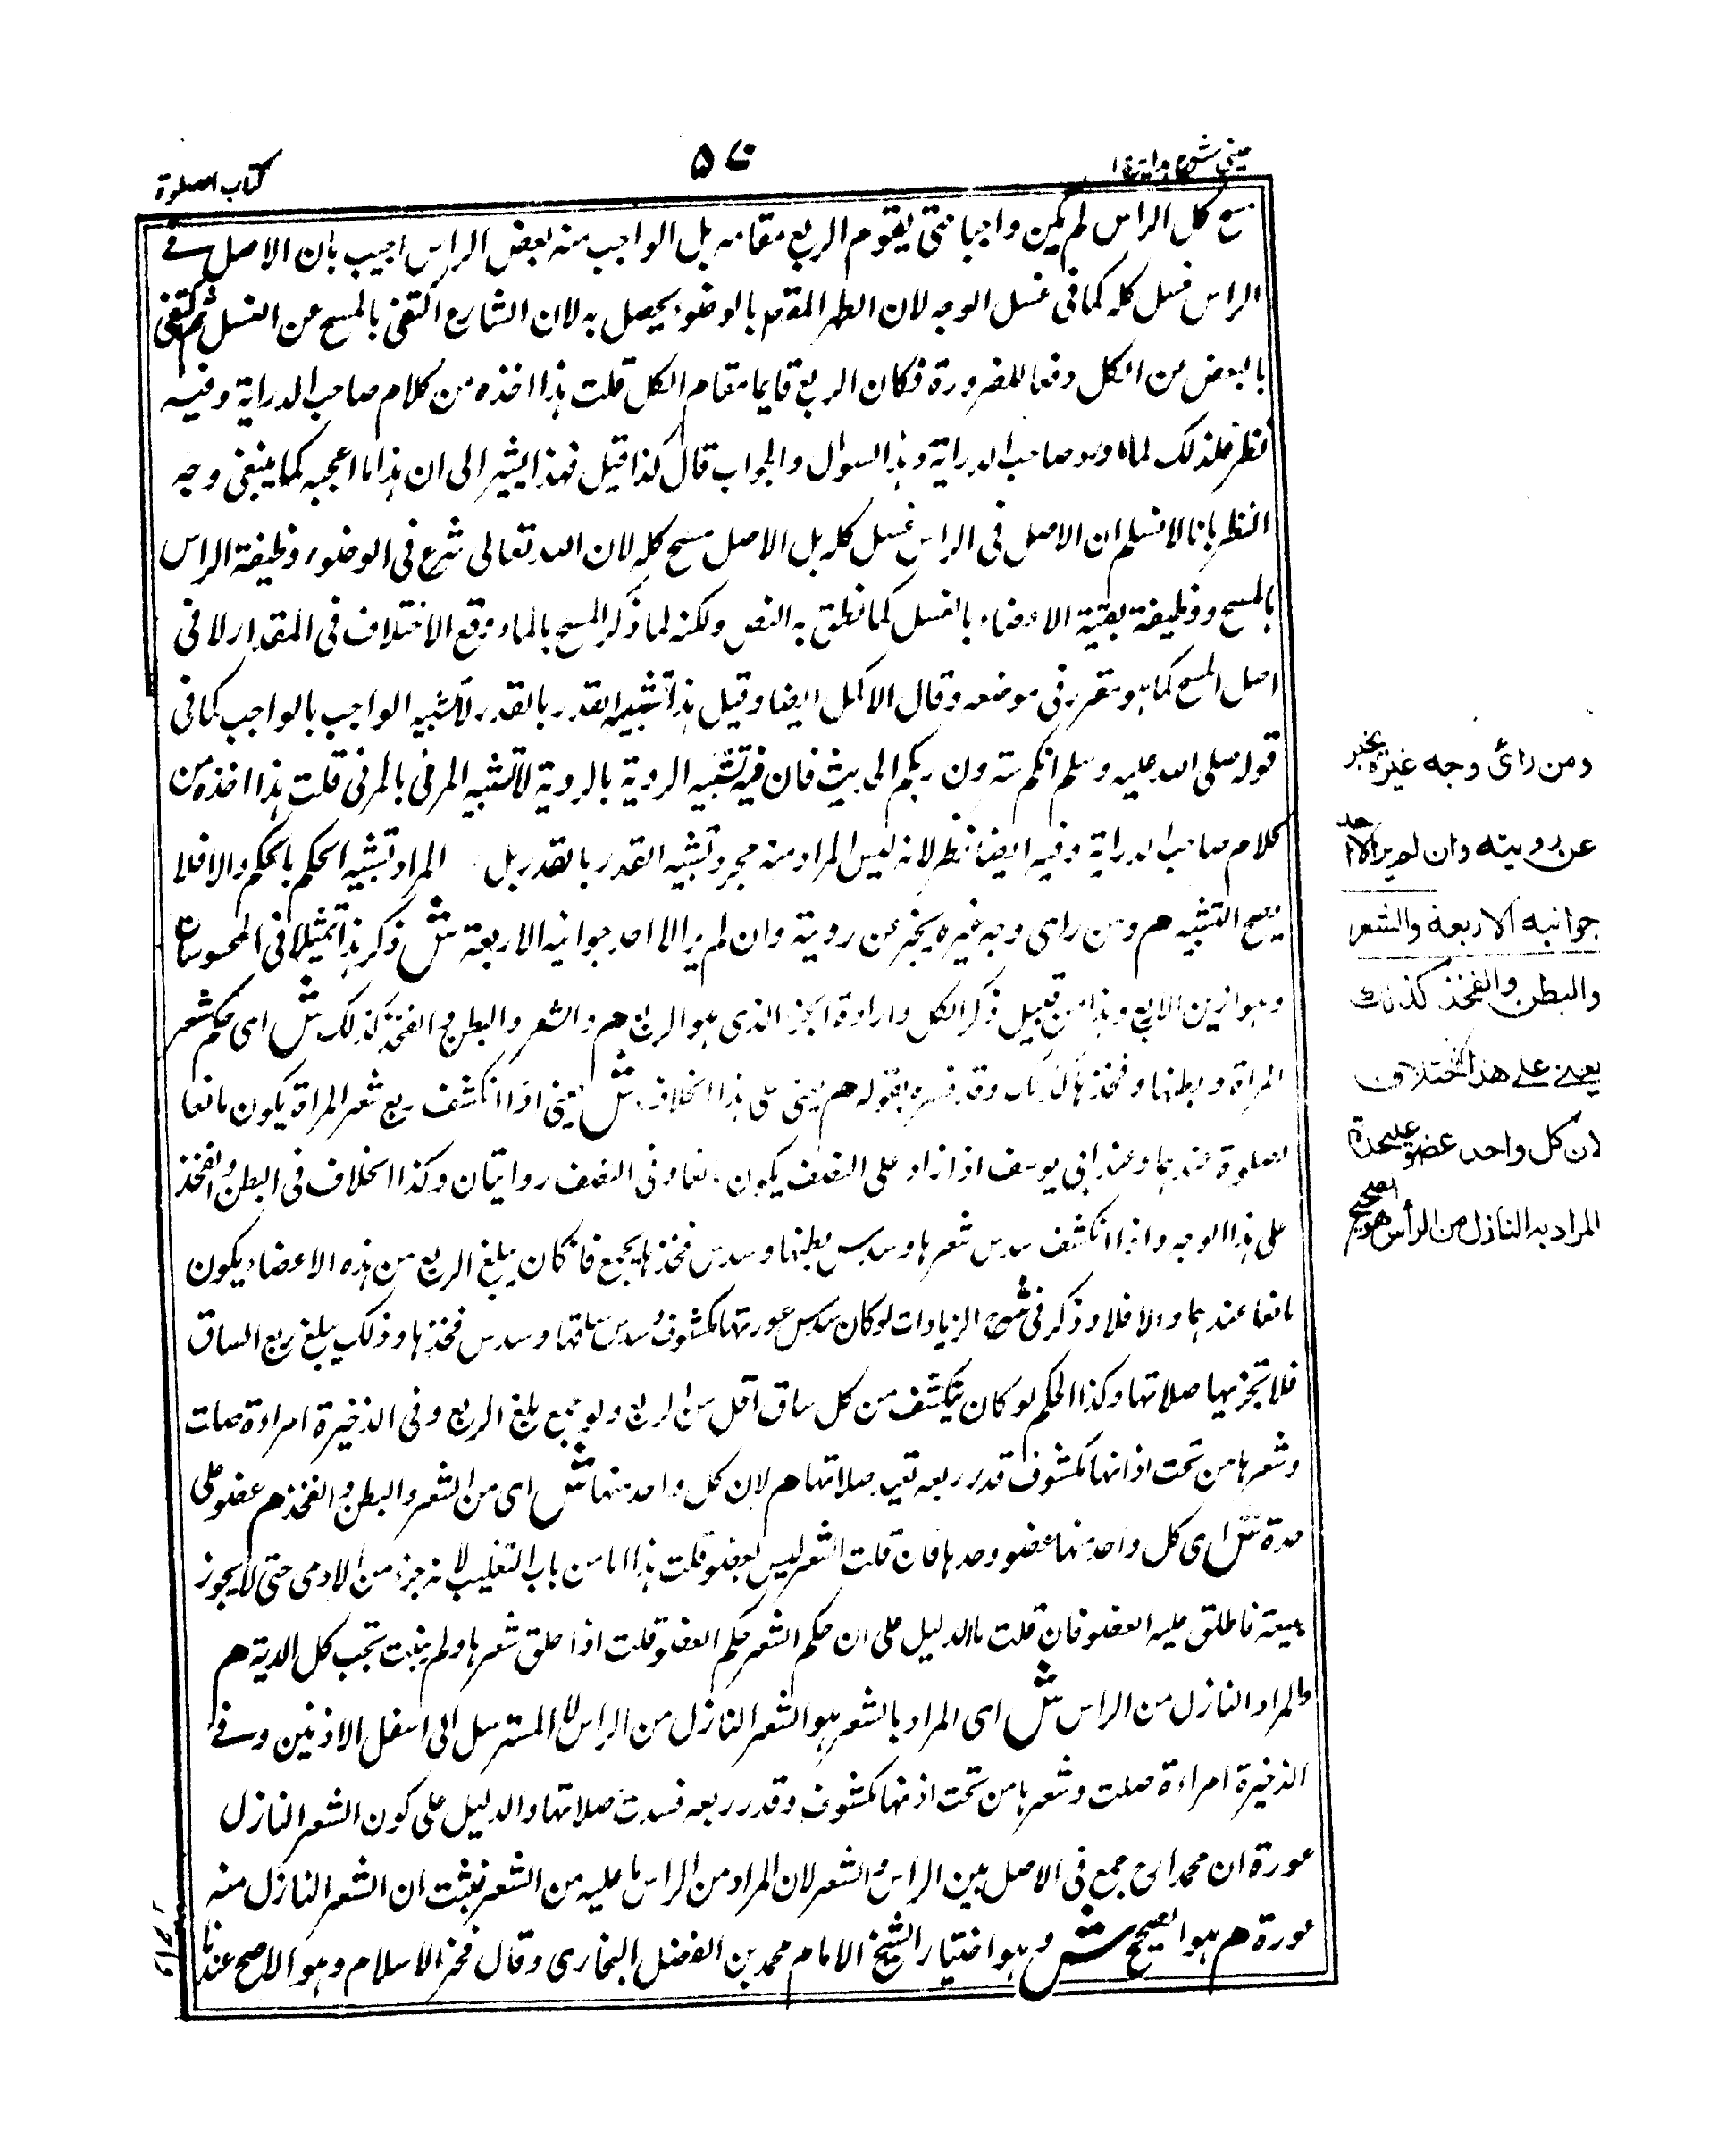 عيني شرح هداية ج ١
٥٧
كتاب الصلوة
مسح كل الراس لم يكن واجبا حتى يقوم الربع مقامه بل الواجب منه بعض الراس اجيب بان الاصل في
الراس غسل كله كما في غسل الوجه لان الطهر المقدم بالوضوء يحصل به لان الشارع اكتفى بالمسح عن الغسل ثم اكتفى
بالبعض من الكل دفعا للضرورة فكان الربع قايما مقام الكل قلت هذا اخذه من كلام صاحب الدراية وفيه
نظر فلذلك لما اورد صاحب الدراية هذا السوال والجواب قال كذا قيل فهذا يشير الى ان هذا ما اعجبه كما ينبغي وجه
النظر بانا لا نسلم ان الاصل في الراس غسل كله بل الاصل مسح كله لان الله تعالى شرع في الوضوء وظيفة الراس
بالمسح ووظيفة بقية الاعضاء بالغسل كما نطق به النص ولكنه لما ذكر المسح بالماء وقع الاختلاف في المقدار لا في
اصل المسح كما هو مقرر في موضعه وقال الاكمل ايضا وقيل هذا تشبيه القدر بالقدر لا تشبيه الواجب بالواجب كما في
قوله صلى الله عليه وسلم انكم سترون ربكم الحديث فان فيه تشبيه الروية بالروية لا تشبيه المرئي بالمرئي قلت هذا اخذه من
كلام صاحب الدراية وفيه ايضا نظر لانه ليس المراد منه مجرد تشبيه القدر بالقدر بل المراد تشبيه الحكم بالحكم والا فلا
يصح التشبيه هم ومن راى وجه غيره يخبر عن رويته وان لم ير الا احد جوانبه الاربعة ش ذكر هذا تمثيلا في المحسوسات
وهو ازين الابع وهذا من قبيل ذكر الكل وارادة الجزء الذي هو الربع هم والشعر والبطن والفخذ كذلك ش اى حكم شعر
المراة وبطنها وفخذها كذلك وقد فسره بقوله هم يعنى على هذا الخلاف ش يعنى اذا انكشف ربع شعر المراة يكون مانعا
لصلوة عندهما وعند ابي يوسف اذا زاد على النصف يكون مانعا وفى النصف روايتان وكذا الخلاف في البطن والفخذ
على هذا الوجه واذا انكشف سدس شعرها وسدس بطنها وسدس فخذها يجمع فان كان يبلغ الربع من هذه الاعضاء يكون
مانعا عندهما والا فلا وذكر في شرح الزيادات لو كان سدس عورتها مكشوف سدس ساقها وسدس فخذها وذلك يبلغ ربع الساق
فلا تجزيها صلاتها وكذا الحكم لو كان ينكشف من كل ساق اقل من الربع ولو جمع بلغ الربع وفى الذخيرة امراءة صلت
وشعرها من تحت اذانها مكشوف قدر ربعه تعيد صلاتها هم لان كل واحد منها ش اى من الشعر والبطن والفخذ هم عضو على
حدة ش اى كل واحد منها عضو وحدها فان قلت الشعر ليس بعضو قلت هذا اما من باب التغليب لانه جزء من الادمى حتى لا يجوز
بيعه فاطلق عليه العضو فان قلت ما الدليل على ان حكم الشعر حكم العضو قلت اذا حلق شعرها ولم ينبت تجب كل الدية هم
والمراد النازل من الراس ش اى المراد بالشعر هو الشعر النازل من الراس لا المسترسل الى اسفل الاذنين وفي
الذخيرة امراءة صلت وشعرها من تحت اذنها مكشوف وقدر ربعه فسدت صلاتها والدليل على كون الشعر النازل
عورة ان محمدا رح جمع في الاصل بين الراس والشعر لان المراد من الراس ما عليه من الشعر فثبت ان الشعر النازل منه
عورة هم هو الصحيح ش وهو اختيار الشيخ الامام محمد بن الفضل البخارى وقال فخر الاسلام وهو الاصح عندنا
ومن رأى وجه غيره يخبر
عن رويته وان لم ير الا احد
جوانبه الاربعة والشعر
والبطن والفخذ كذلك
يعنى على هذا الاختلاف
لان كل واحد عضو عليحدة
المراد به النازل من الرأس هو الصحيح